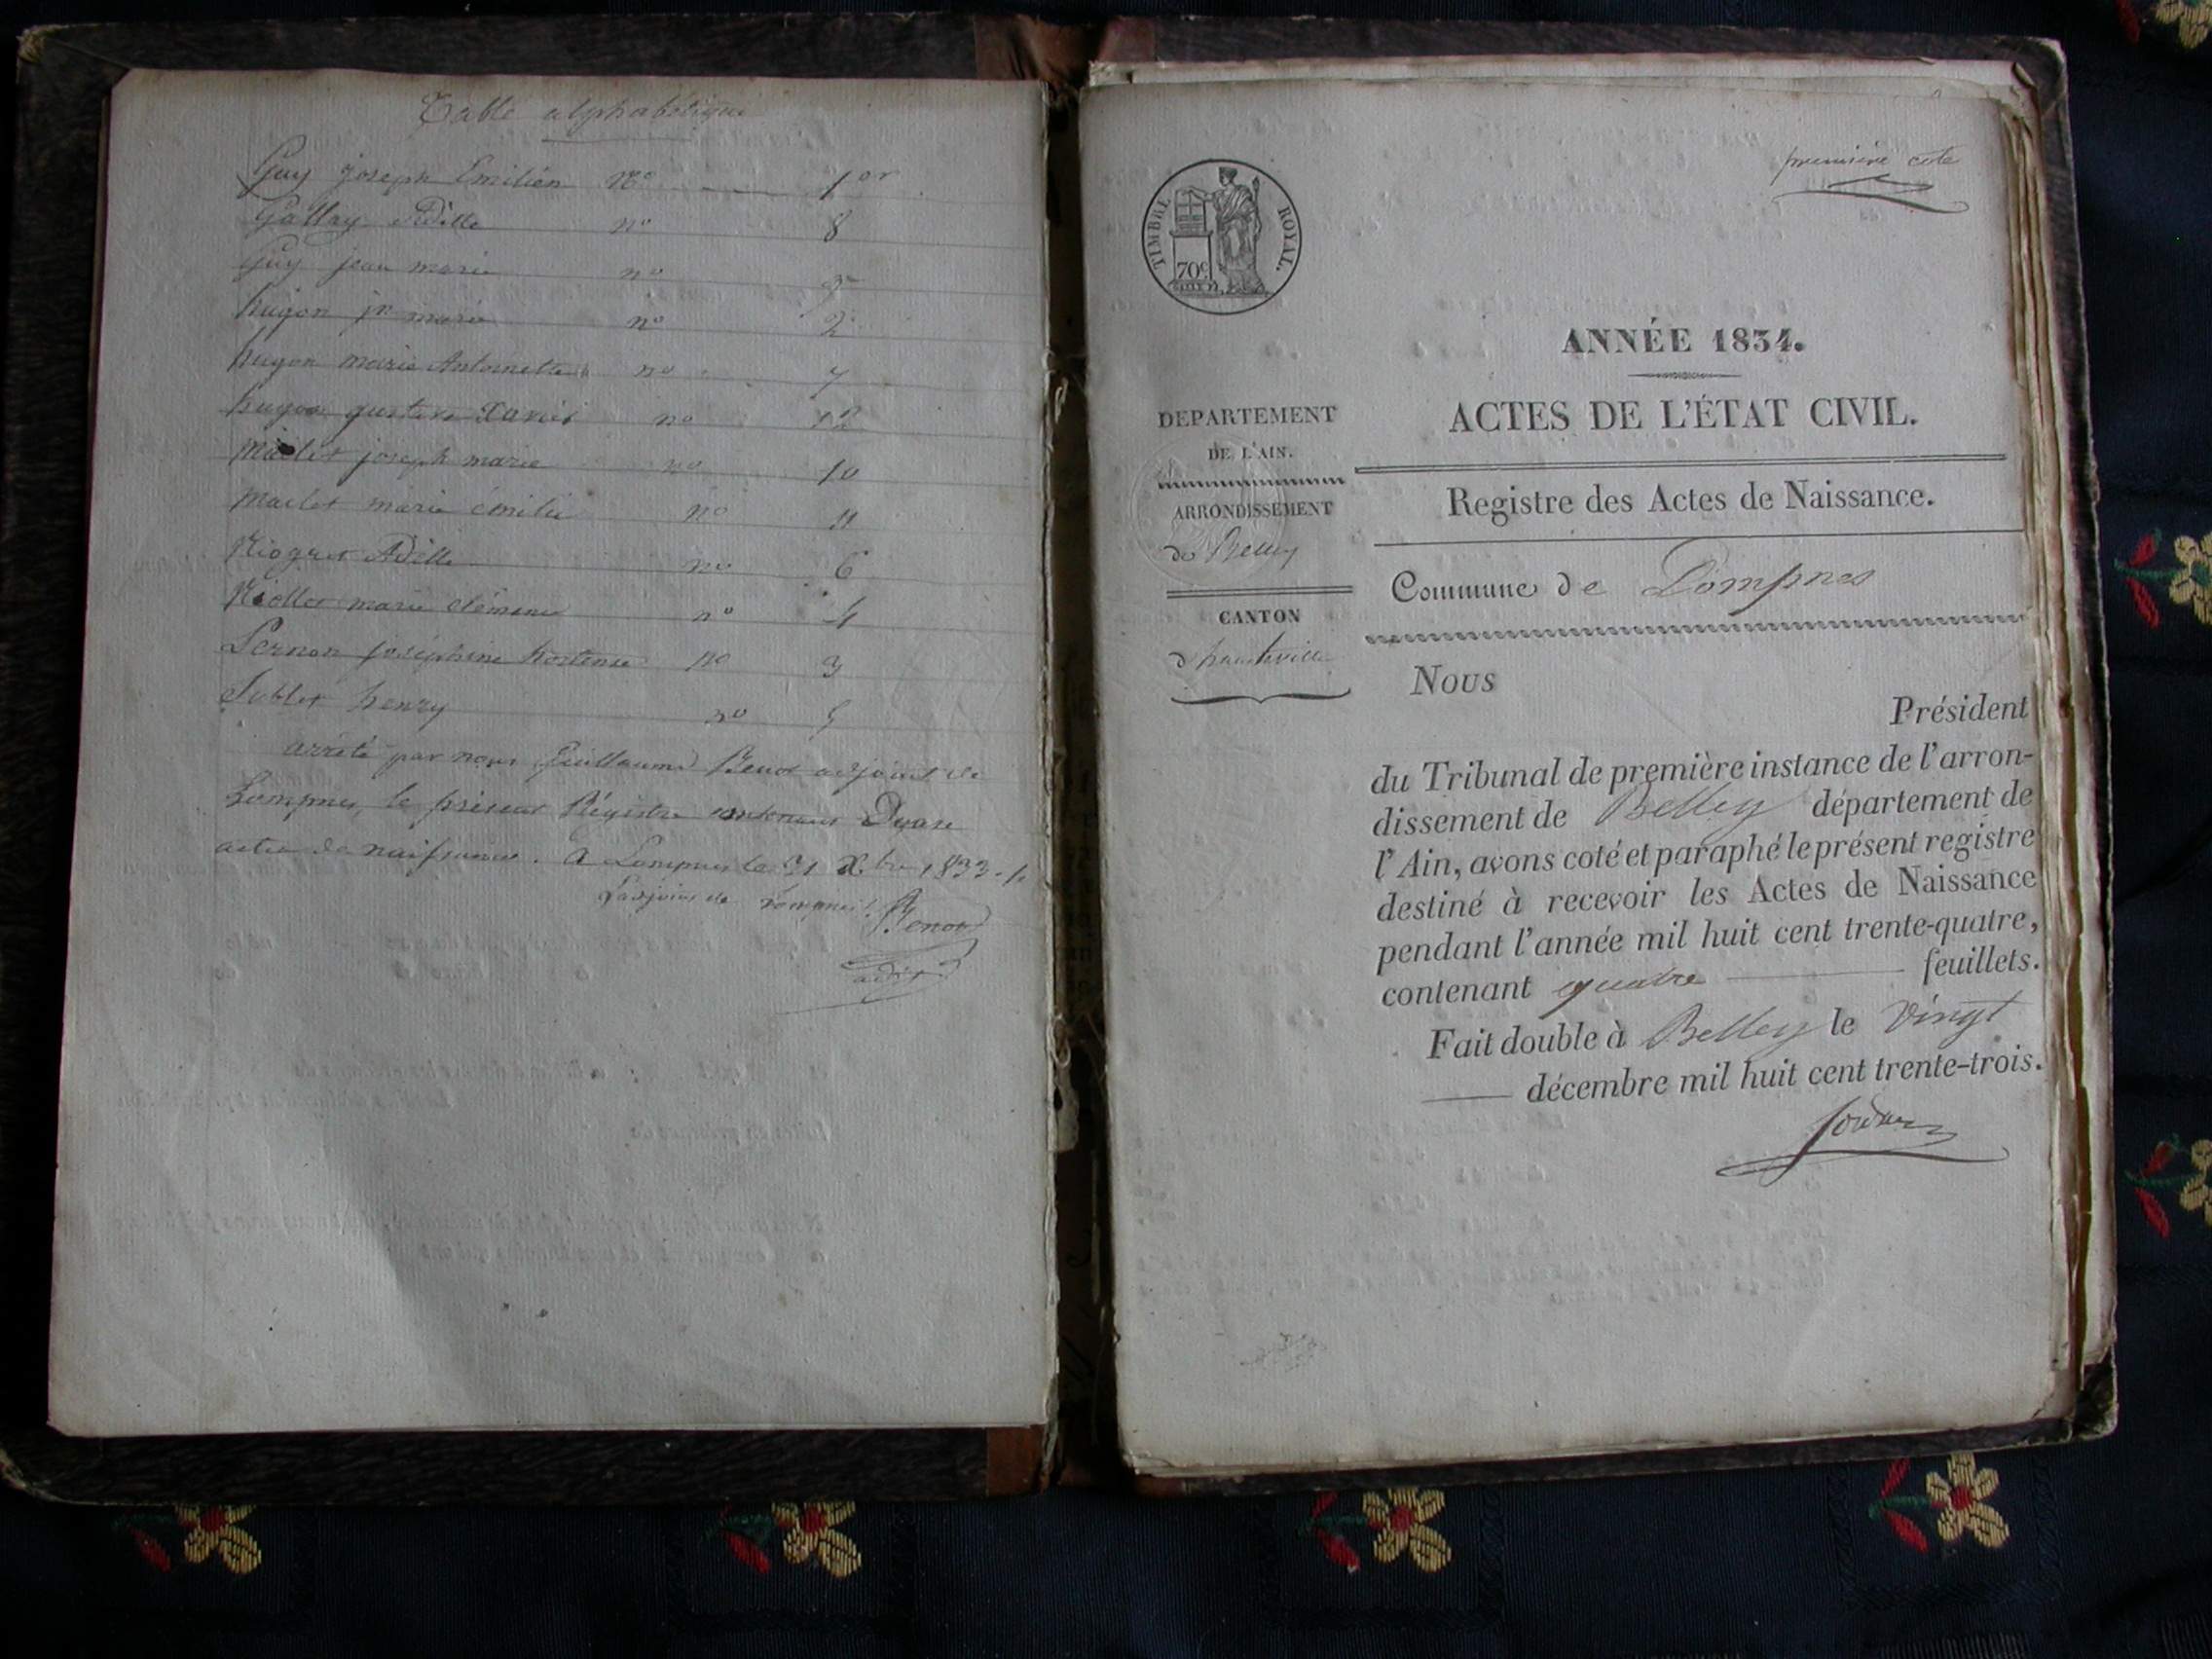 Table alphabétique
Guy joseph Emilien No 1er
Gallay Adille no 8
Guy jean marie no
hugon jn marie no 2
hugon marie Antoinette no 7
hugon gustave Xavier no 12
joseph marie no 10
Maclet marie émilie no 11
Adille no 6
marie clémence no 4
Pernon joséphine hortense no 3
Sublet henry no 5
arrêté par nous Guillaume Benot adjoint de
Lompnes, le présent Régistre contenant Douze
actes de naissance. A Lompnes le 31 Xbre 1833
L'adjoint de Lompnes
Benot
adjt
première cote
TIMBRE ROYAL.
70c
ANNÉE 1834.
ACTES DE L'ÉTAT CIVIL.
DEPARTEMENT
DE L'AIN.
ARRONDISSEMENT
de Belley
CANTON
d'hauteville
Registre des Actes de Naissance.
Commune de Lompnes
Nous
Président
du Tribunal de première instance de l'arron-
dissement de Belley département de
l'Ain, avons coté et paraphé le présent registre
destiné à recevoir les Actes de Naissance
pendant l'année mil huit cent trente-quatre,
contenant quatre feuillets.
Fait double à Belley le vingt
décembre mil huit cent trente-trois.